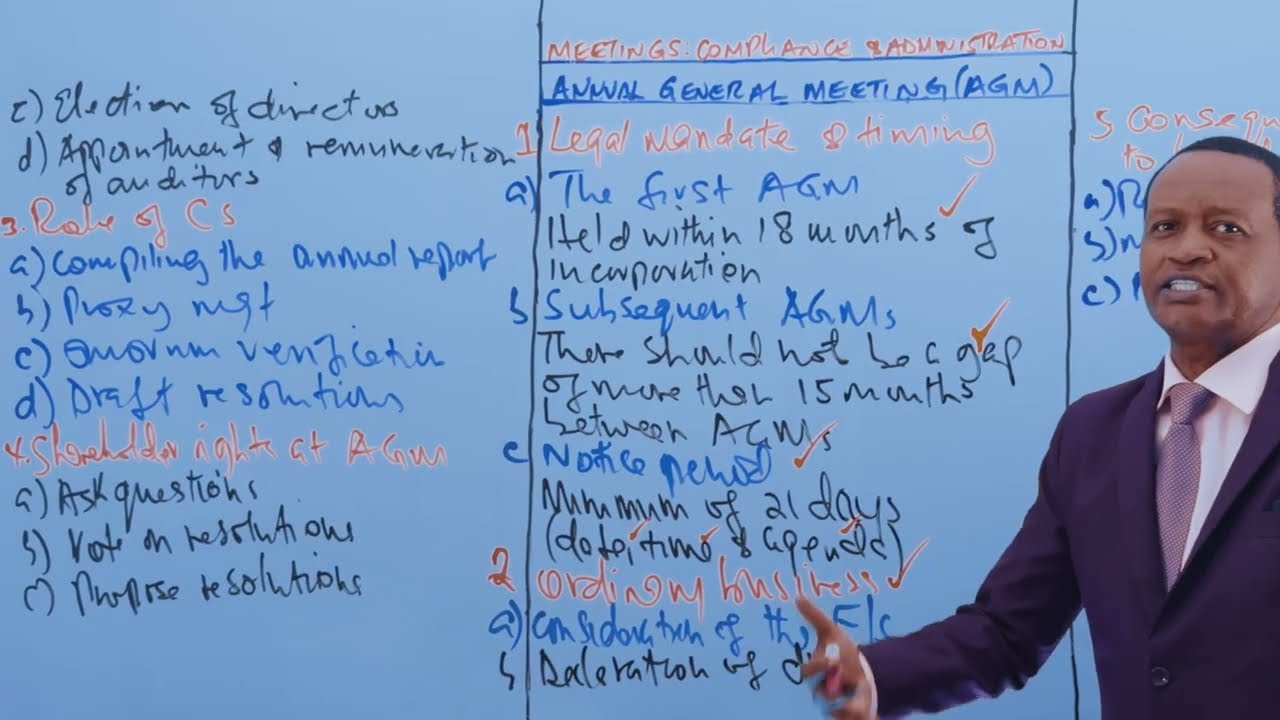 MEETINGS: COMPLIANCE & ADMINISTRATION
ANNUAL GENERAL MEETING (AGM)
1 Legal mandate & timing
a) The first AGM
Held within 18 months of
incorporation
b Subsequent AGMs
There should not be a gap
of more than 15 months
between AGMs
c Notice period
Minimum of 21 days
(date, time & agenda)
2 Ordinary business
a) Consideration of the F/s
b Declaration of
c) Election of directors
d) Appointment & remuneration
of auditors
3. Role of CS
a) Compiling the annual report
b) Proxy mgt
c) Quorum verification
d) Draft resolutions
4. Shareholder rights at AGM
a) Ask questions
b) Vote on resolutions
c) Propose resolutions
5 Consequ
to
a)
b)
c)